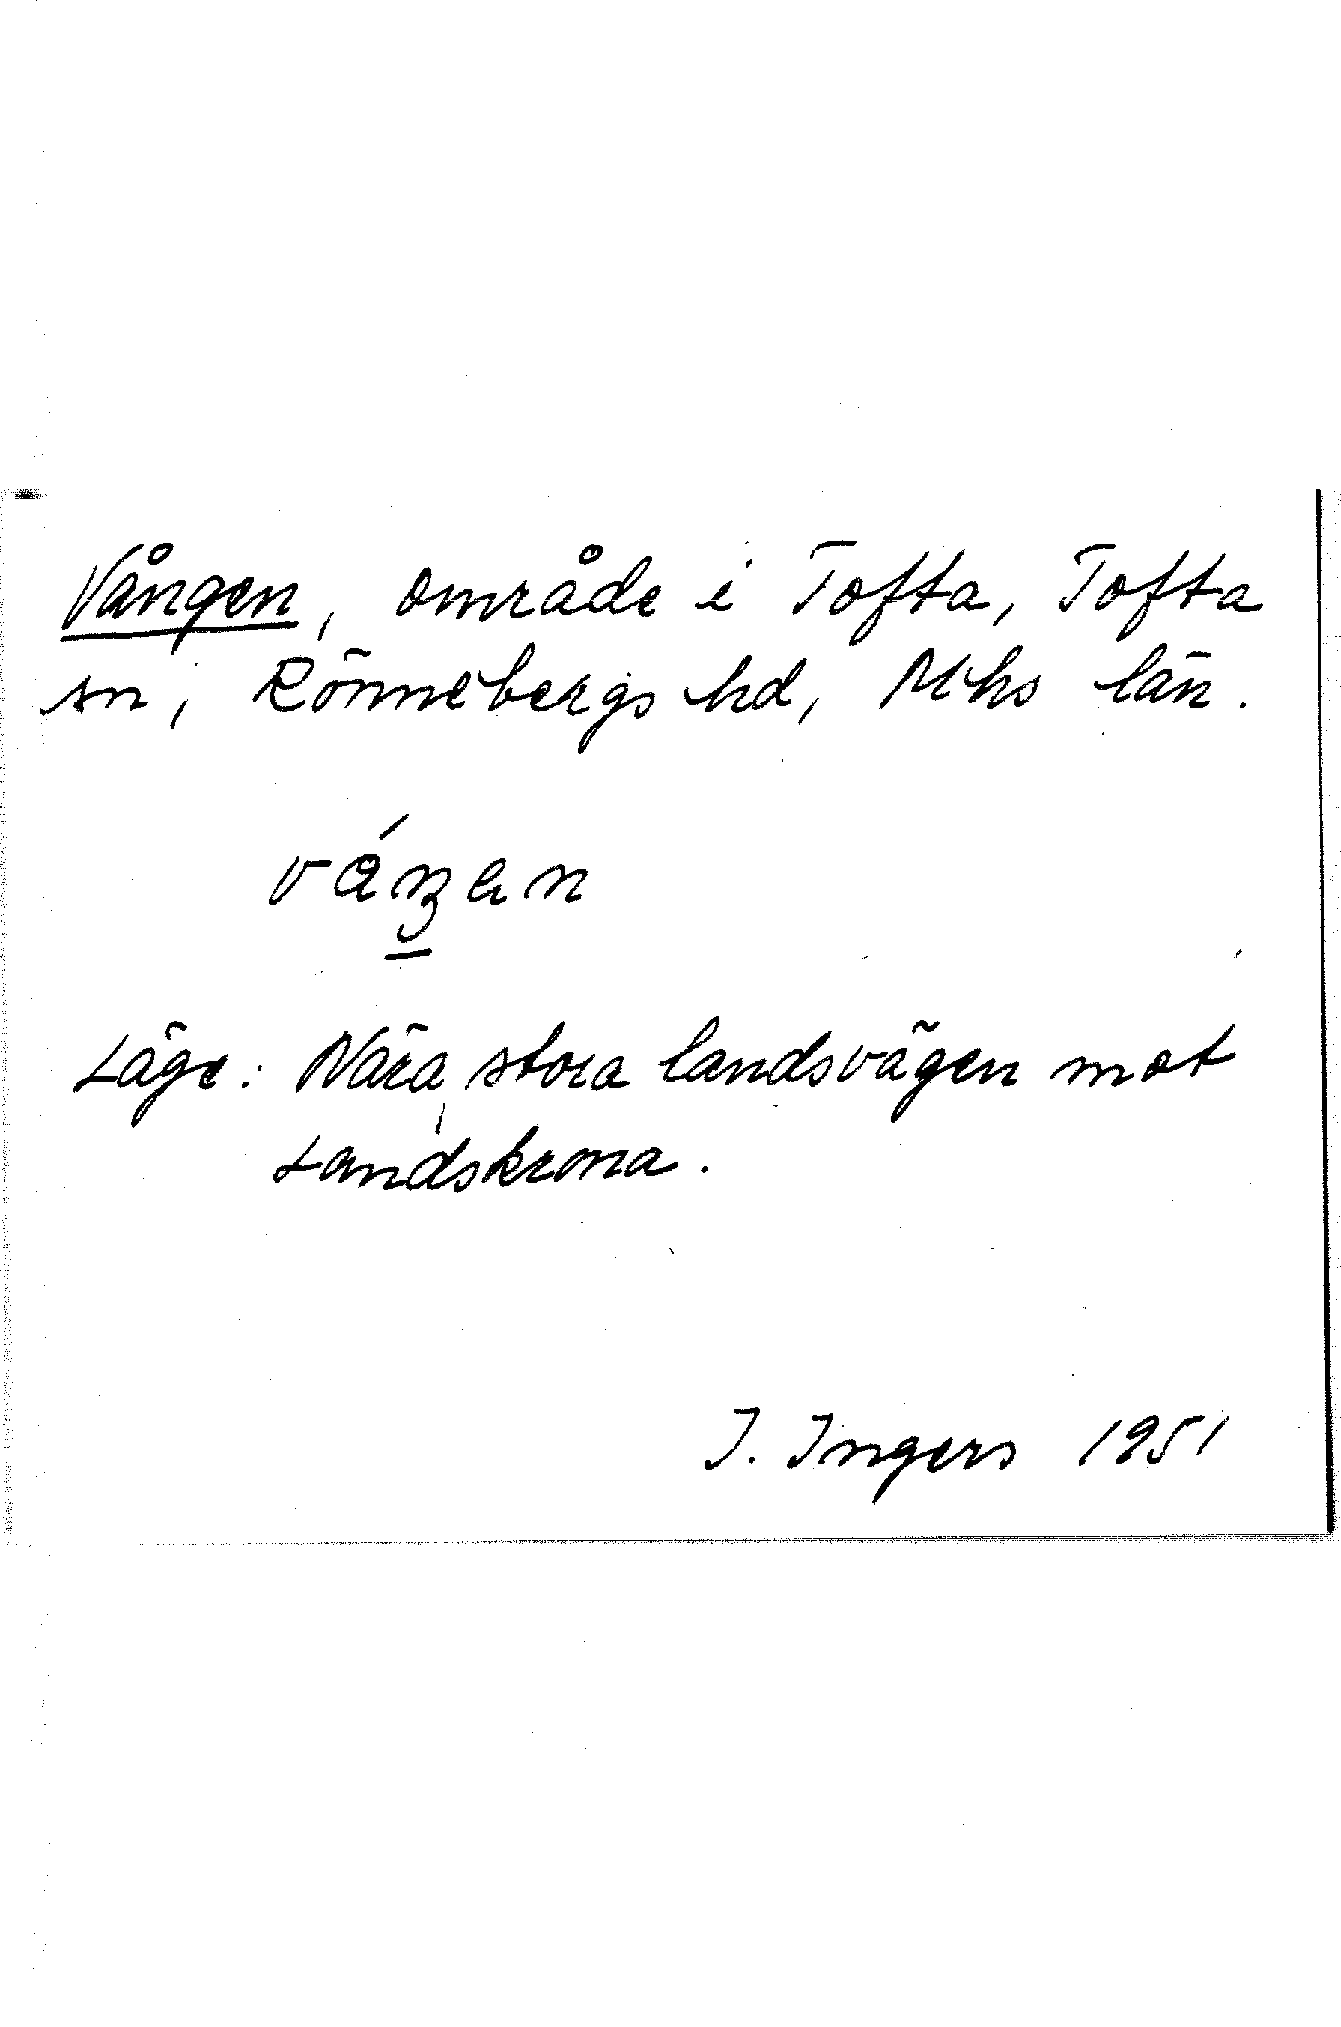 Vången, område i Tofta, Tofta
sn, Rönnebergs hd, Mhs län.
Läge: Nära stora landsvägen mot
Landskrona.
I. Ingers 1951